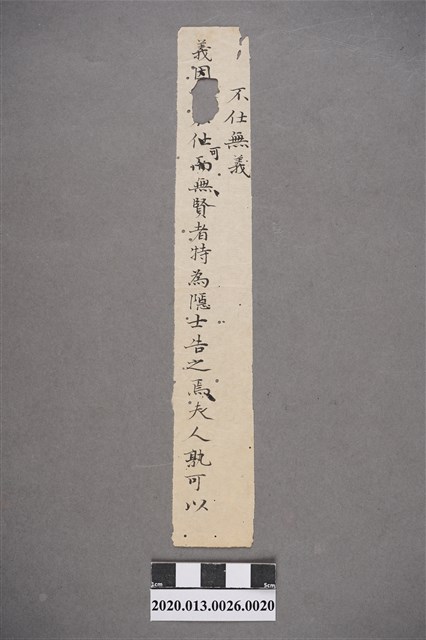 不仕無義
義因仕可而無賢者特為隱士告之焉夫人孰可以
2cm 5cm
2020.013.0026.0020